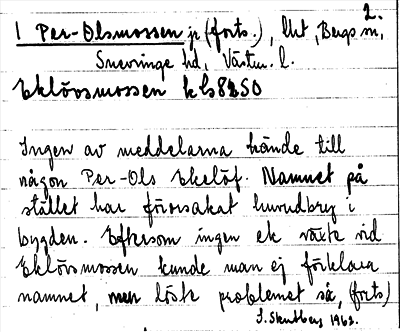 2.
1 Per-Olsmossen jr (forts.), Urt, Bergs sn,
Snevringe hd, Västm. l.
Eklövsmossen kls8250
Ingen av meddelarna kände till
någon Per-Ols Ekelöf. Namnet på
stället har förorsakat huvudbry i
bygden. Eftersom ingen ek växte vid
Eklövsmossen kunde man ej förklara
namnet, men löste problemet så, (forts)
1963.